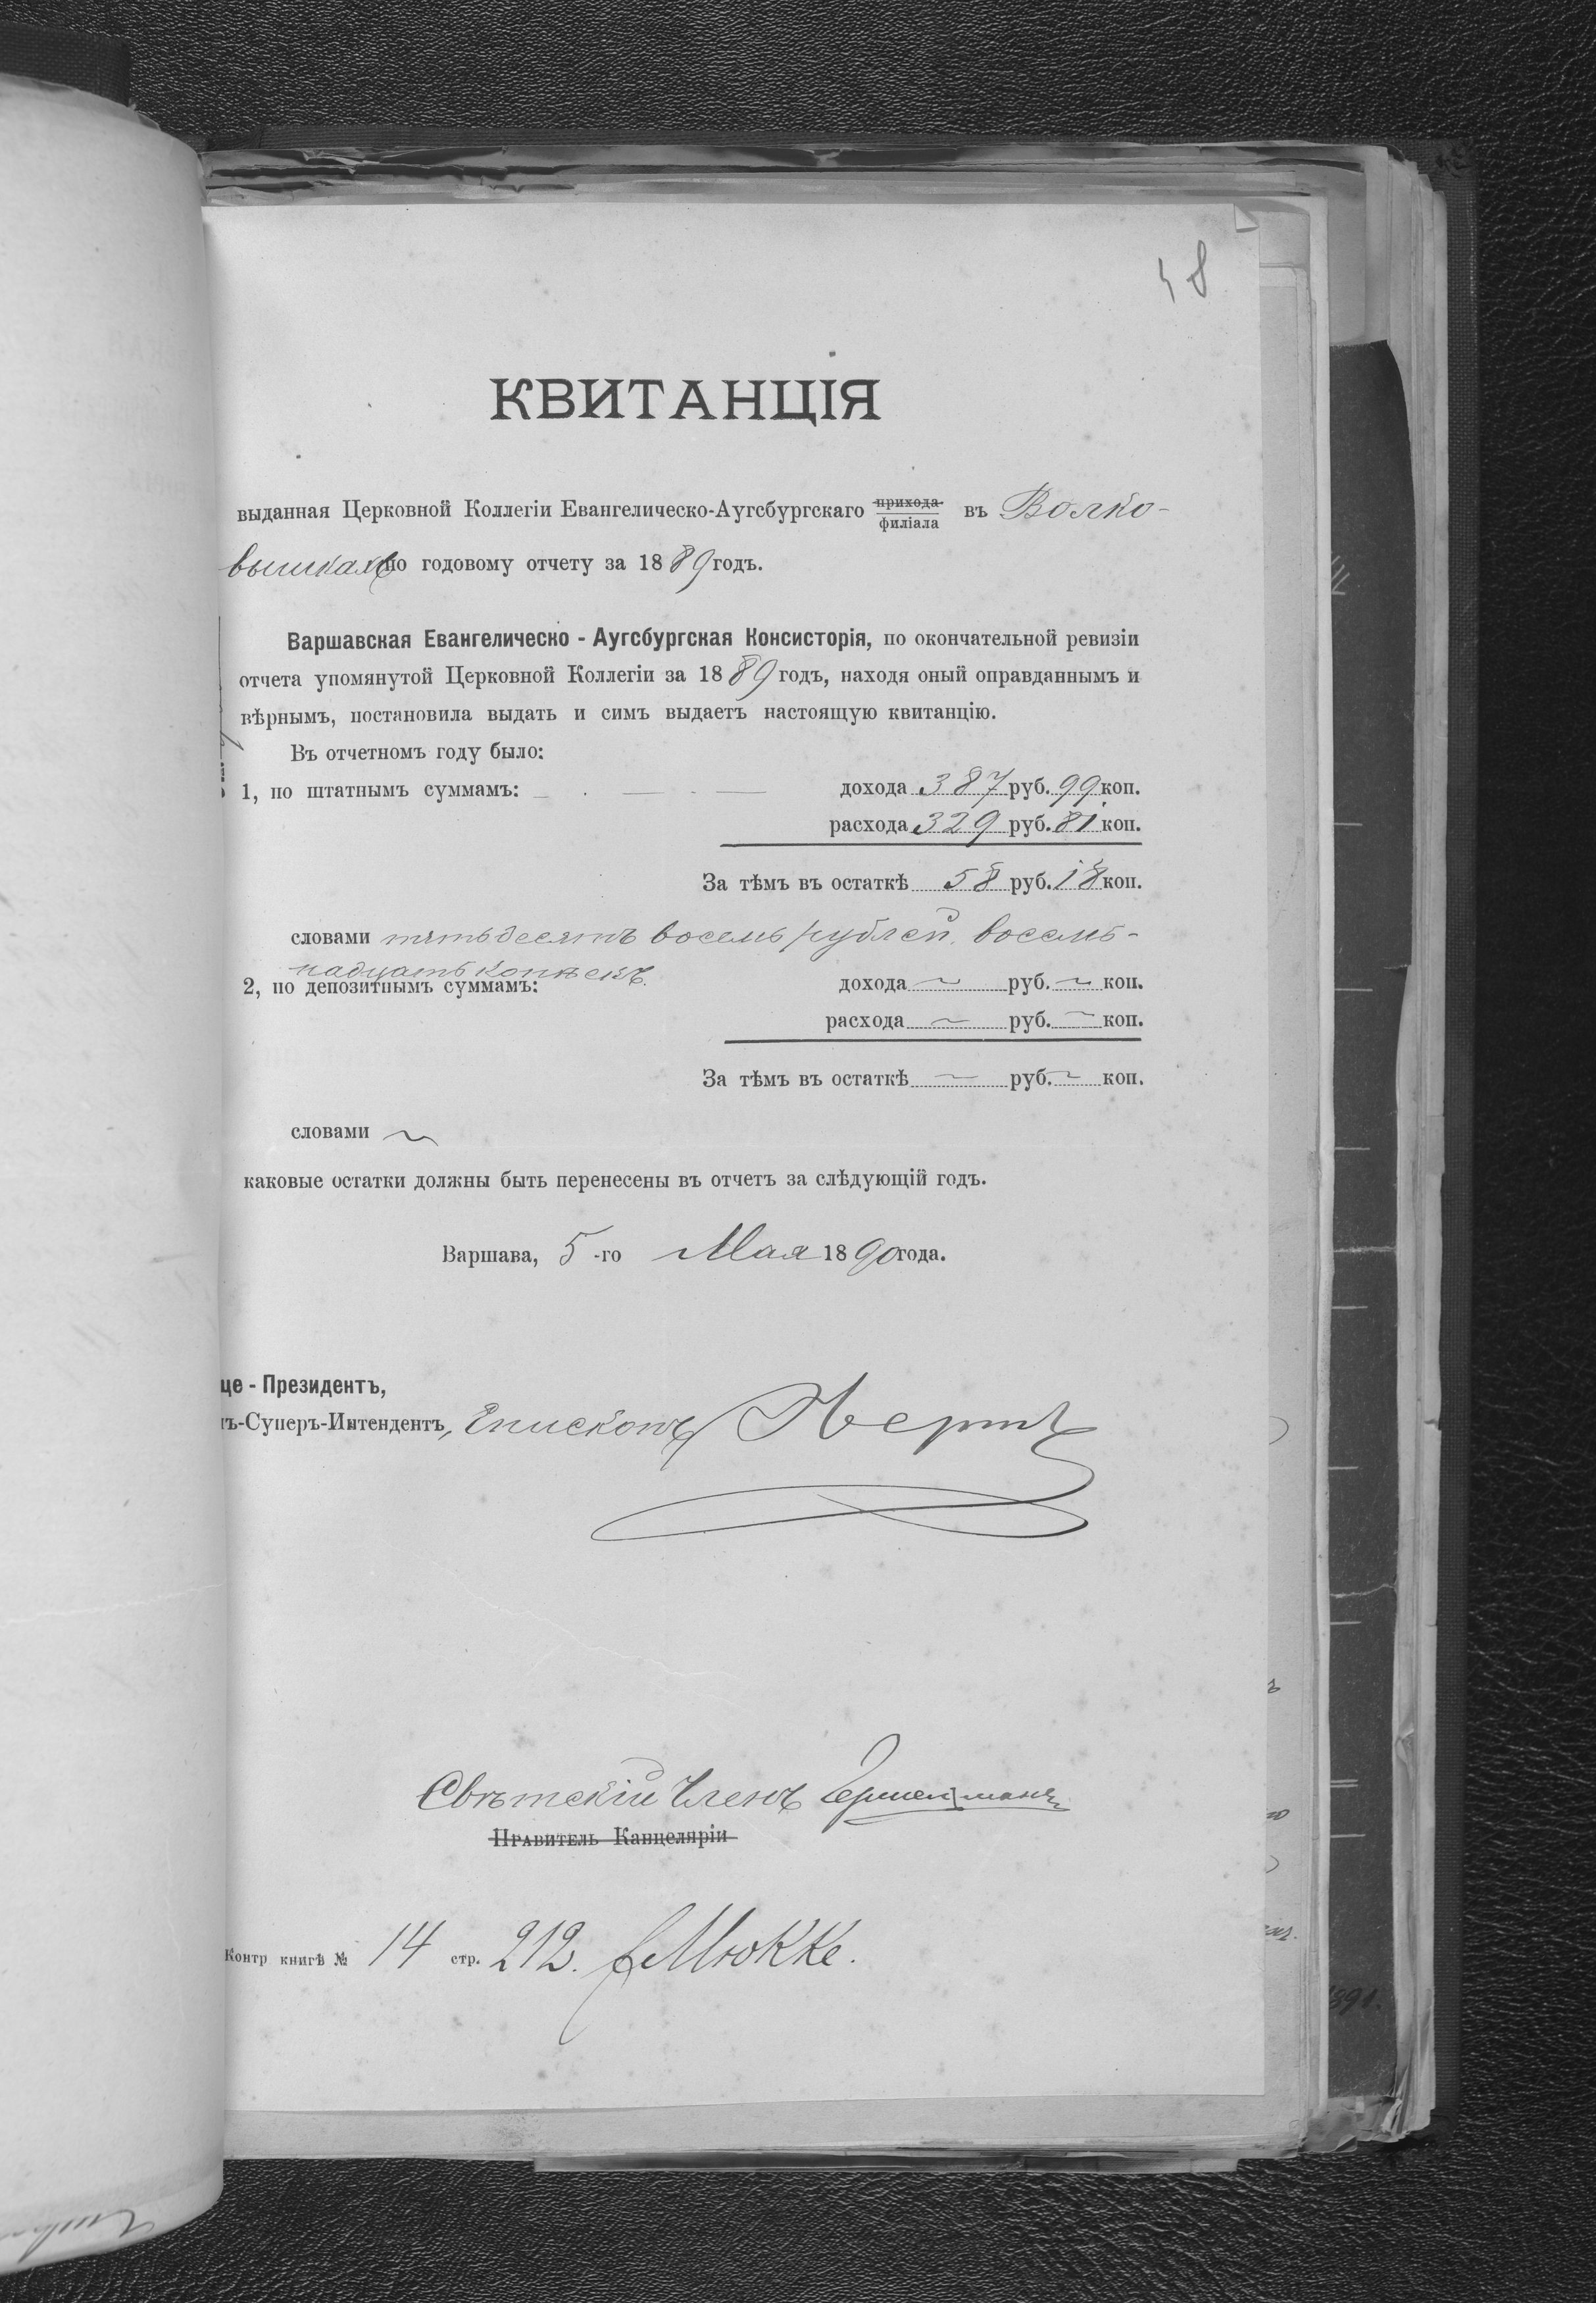 58
КВИТАНЦІЯ
выданная Церковной Коллегіи Евангелическо-Аугсбургскаго прихода филіала въ Волко-
вышкахъ по годовому отчету за 1889 годъ.
Варшавская Евангелическо - Аугсбургская Консисторія, по окончательной ревизіи
отчета упомянутой Церковной Коллегіи за 1889 годъ, находя оный оправданнымъ и
вѣрнымъ, постановила выдать и симъ выдаетъ настоящую квитанцію.
Въ отчетномъ году было:
1, по штатнымъ суммамъ: дохода 387 руб. 99 коп.
расхода 329 руб. 81 коп.
За тѣмъ въ остаткѣ 58 руб. 18 коп.
словами пятьдесятъ восемь рублей, восемь-
надцать копѣекъ.
2, по депозитнымъ суммамъ: дохода ~ руб. ~ коп.
расхода ~ руб. ~ коп.
За тѣмъ въ остаткѣ ~ руб. ~ коп.
словами ~
каковые остатки должны быть перенесены въ отчетъ за слѣдующій годъ.
Варшава, 5-го Мая 1890 года.
це - Президентъ,
ъ-Суперъ-Интендентъ, Епископъ
Свѣтскій Членъ
Правитель Канцеляріи
Контр книгѣ № 14 стр. 212. Мюкке.
1891.